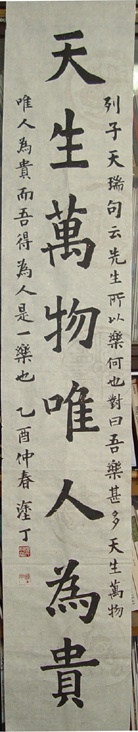 天生萬物唯人為貴
列子天瑞句云先生所以樂何也對曰吾樂甚多天生萬物
唯人為貴而吾得為人是一樂也 乙酉仲春 塗丁